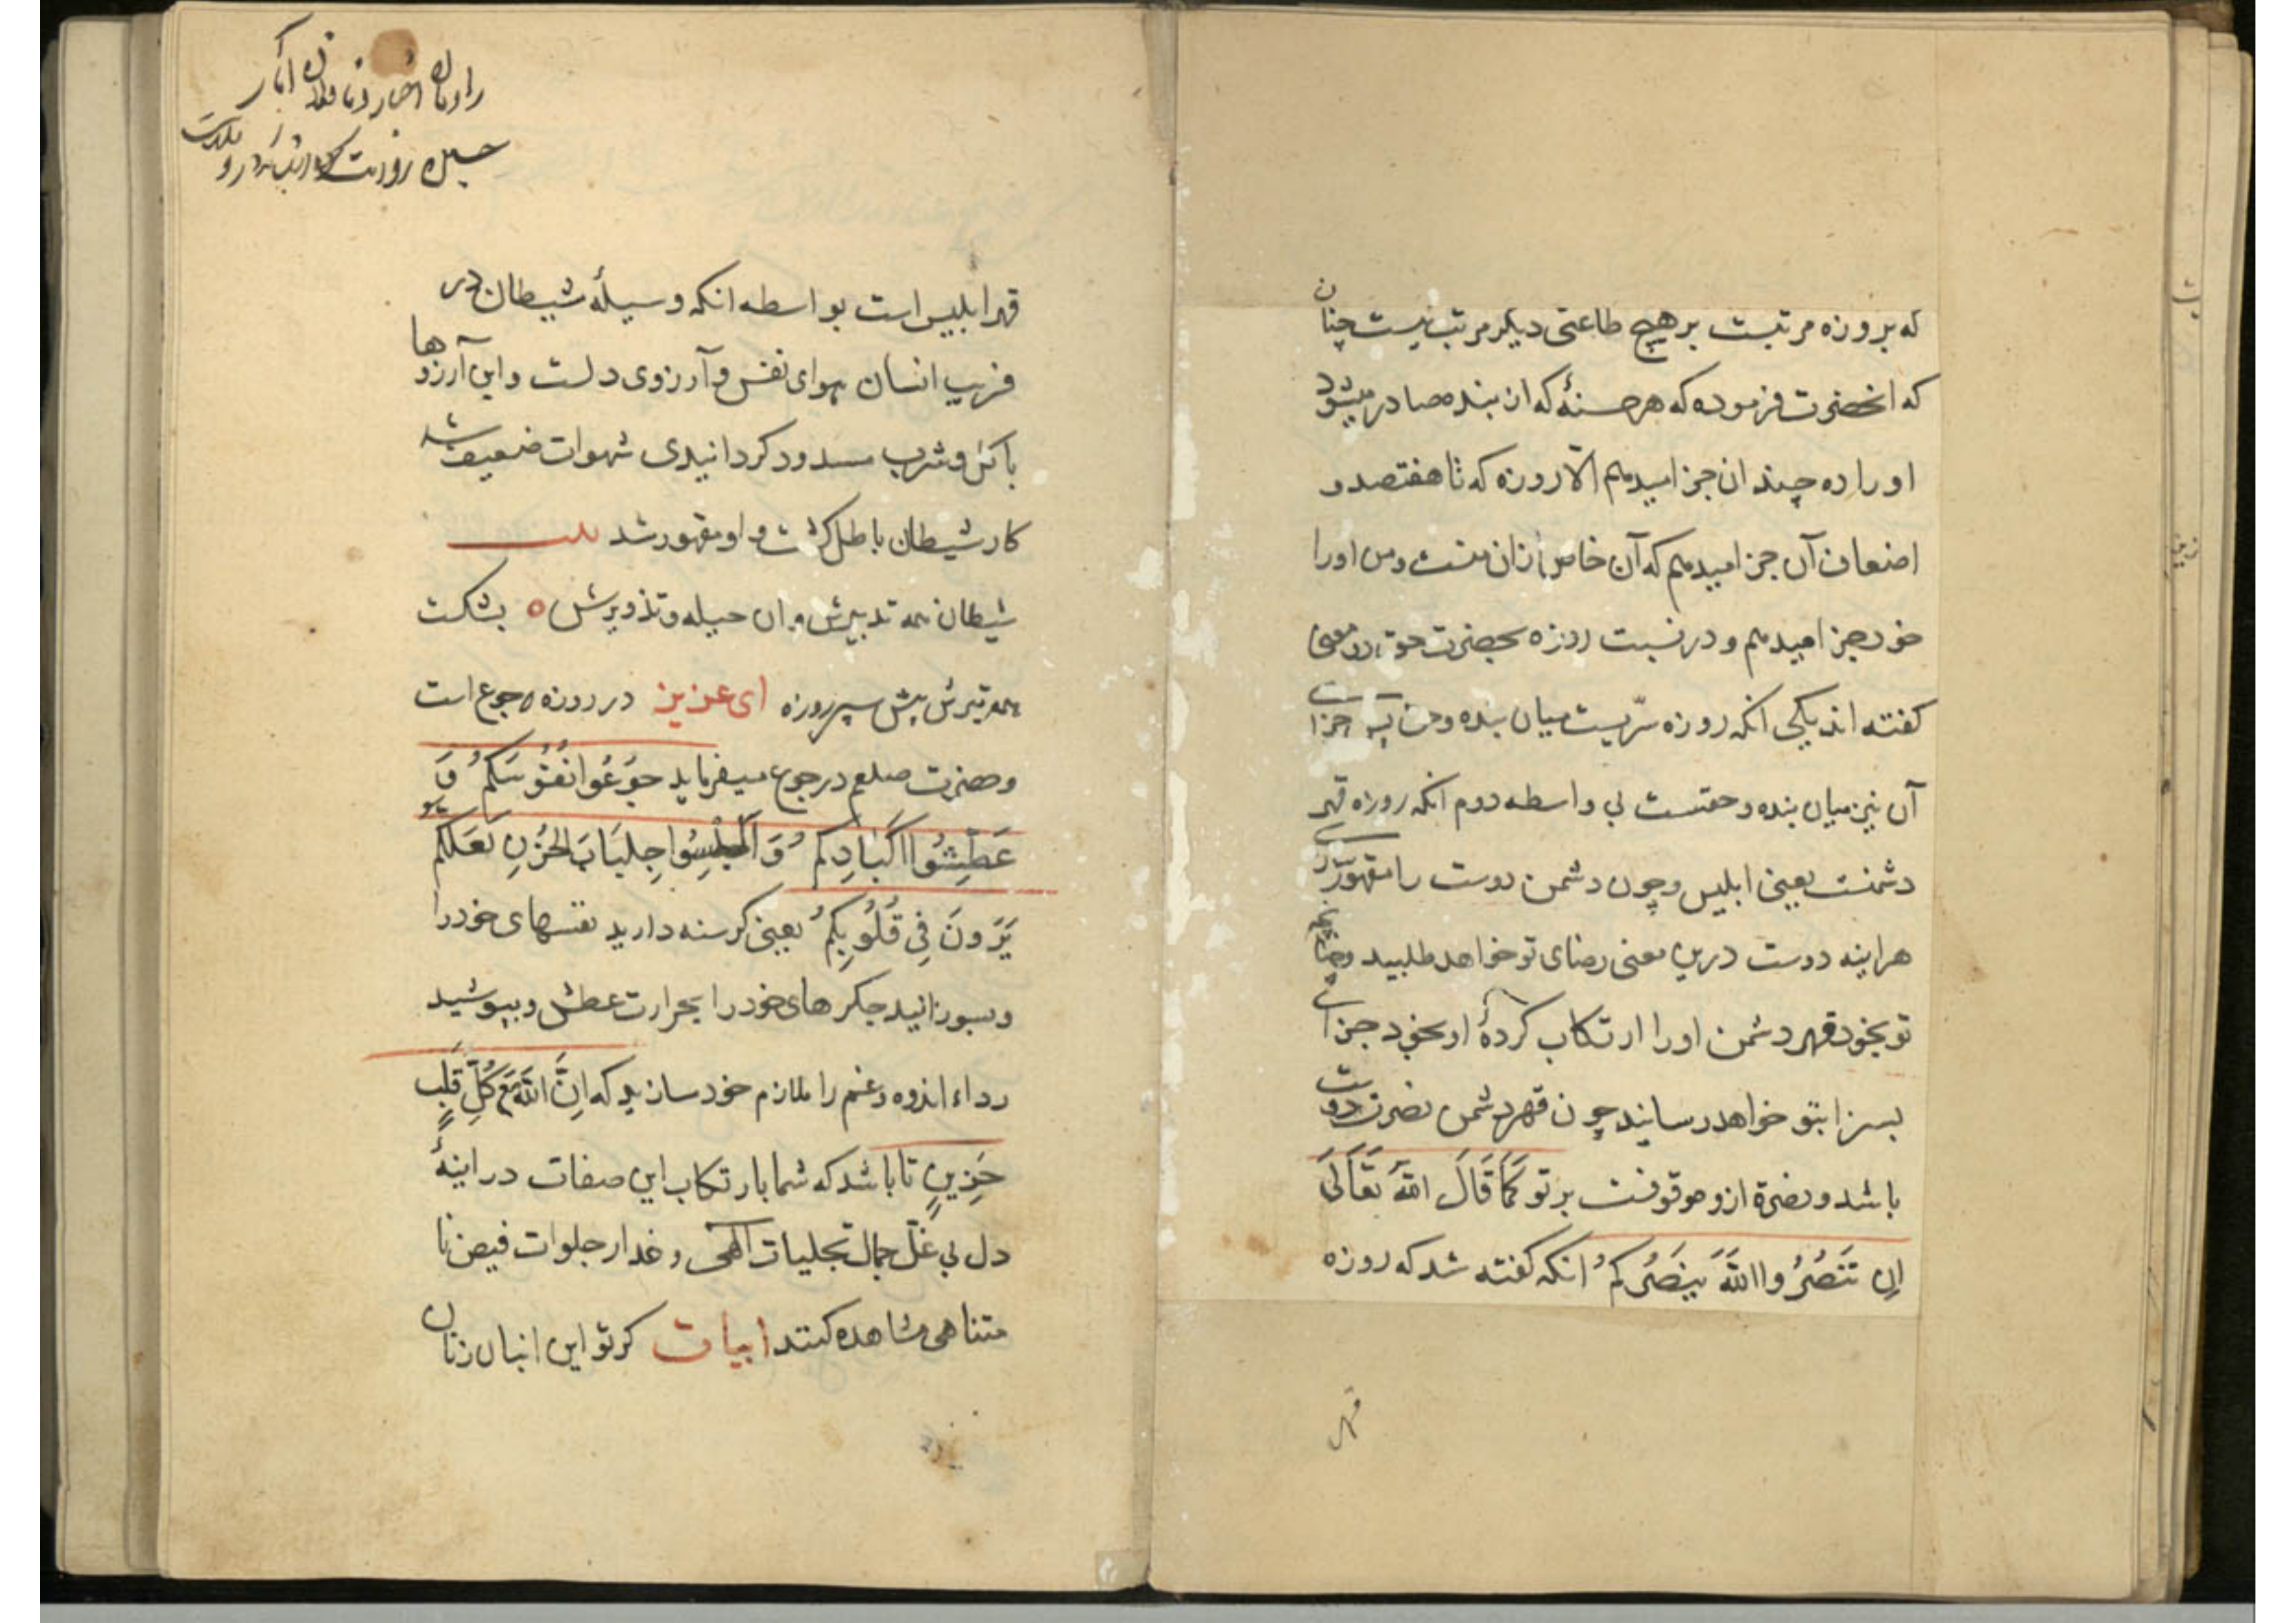 که بروزه مرتبست بر هیچ طاعتی دیکر مرتب نیست چنان
که انحضرت فرموده که هر حسنهٔ که از بنده صادر میشود
او را ده چندان جزا میدهم الّا روزه که تا هفتصد و
اضعاف آن جزا میدهم که آن خاص ازان منست و من او را
خود جزا میدهم و در نسبت روزه بحضرت حق دو معنی
کفته اند یکی انکه روزه سرّیست میان بنده و حق جزا
آن نیز میان بنده و حقست بی واسطه دوم انکه روزه قهر
دشمنست یعنی ابلیس و چون دشمن دوست را مقهور
هراینه دوست درین معنی رضای تو خواهد طلبید و چنانچه
تو بخود قهر دشمن او را ارتکاب کردهٔ او بخود جزای
بسزا بتو خواهد رسانید چون قهر دشمن نصرت دوست
باشد و نصرة ازو موقوفست بر تو کَمَا قَالَ اللهُ تَعَالَیٰ
اِن تَنصُرُوا اللهَ یَنصُرکُم انکه کفته شد که روزه
قهر
راویان اخبار و ناقلان آثار
قهر ابلیس است بواسطه انکه وسیلهٔ شیطان در
فریب انسان هوای نفس و آرزوی دلست و این آرزوها
باکل و شرب مسدود کردانیدی شهوات ضعیف شد
کار شیطان باطل کشت و او مقهور شد
شیطان همه تدبیرش و ان حیله و تذویرش ه بشکست
همه تیرش پیش سپر روزه ای عزیز در روزه جوع است
و حضرت صلعم در جوع میفرماید جَوِّعُوا نُفُوسَکُم وَ
عَطِّشُوا اَکبَادِکُم وَ اَلبِسُوا جِلبَابَ الحُزنِ لَعَلَّکُم
یَرَونَ فِی قُلُوبِکُم یعنی کرسنه دارید نفسهای خود را
و بسوزانید جکرهای خود را بحرارت عطش و بپوشید
رداء اندوه و غم را ملازم خود سازید که اِنَّ اللهَ مَعَ کُلِّ قَلبٍ
حَزِینٍ تا باشد که شما بارتکاب این صفات در اینهٔ
دل بی غلّ جمال تجلیات الهی و عذار جلوات فیض نا
متناهی مشاهده کنند ابیات کر تو این انبان زنان